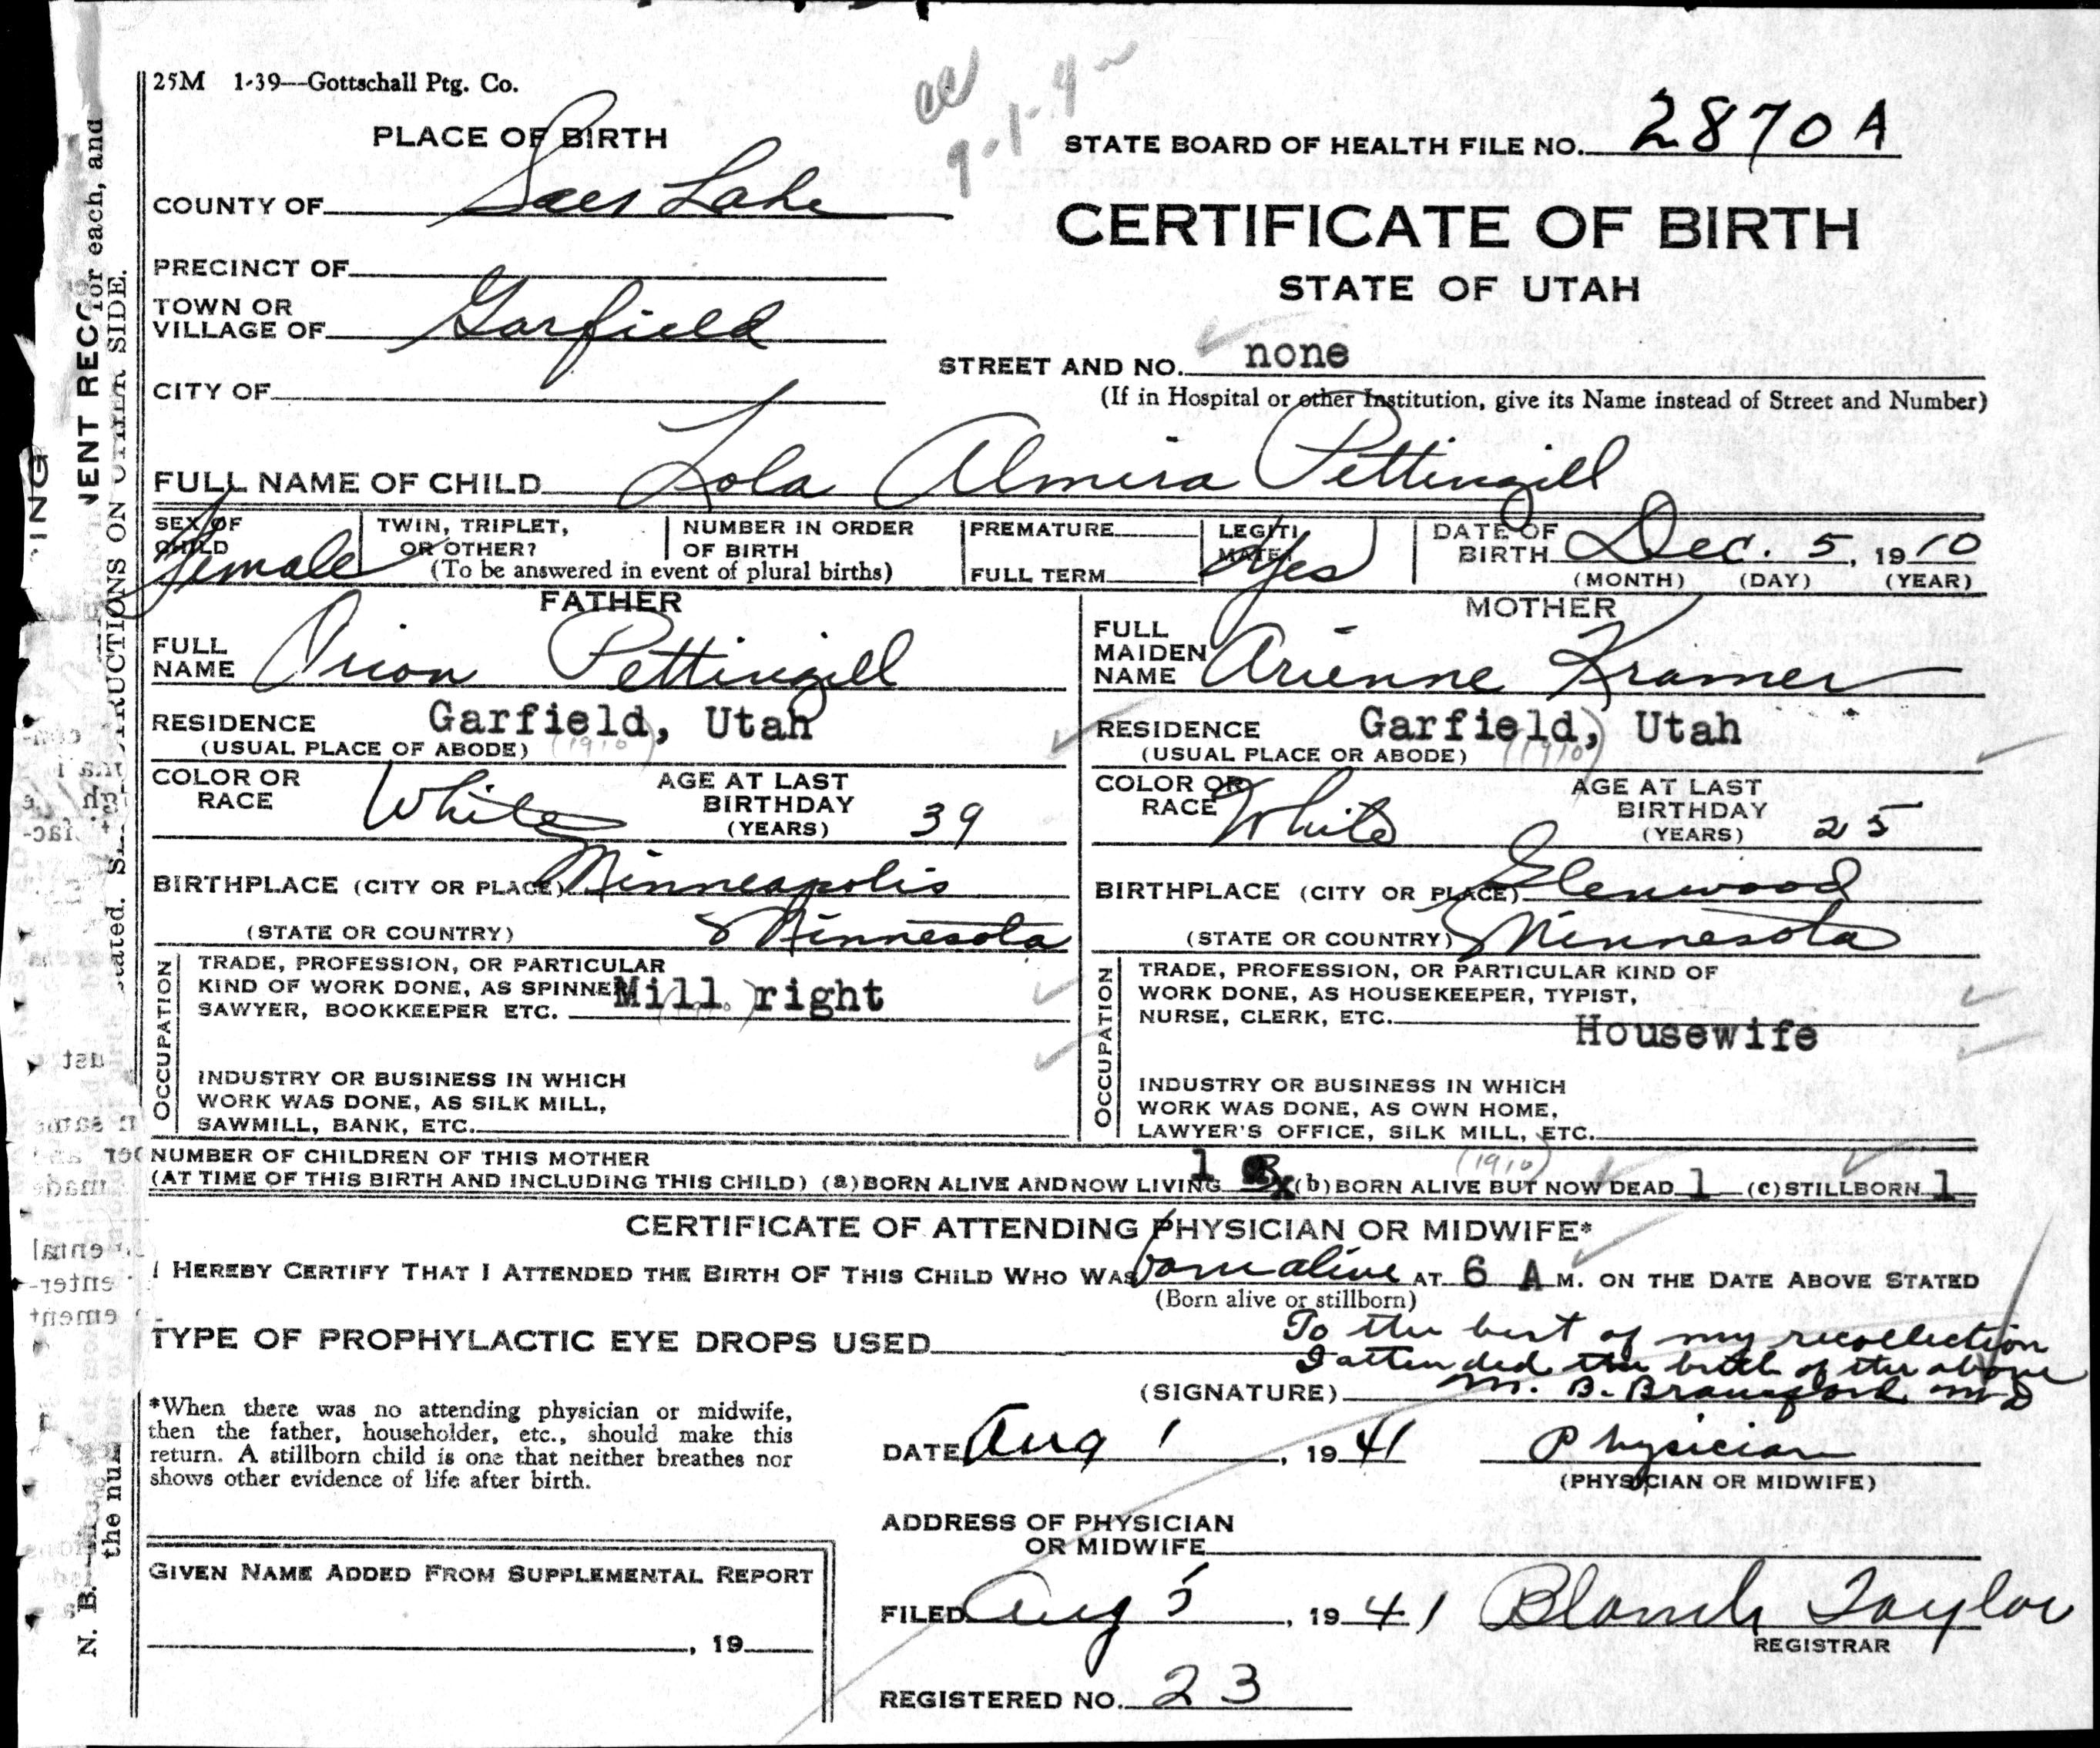 25M 1-39—Gottschall Ptg. Co.
PLACE OF BIRTH
STATE BOARD OF HEALTH FILE NO. 2870 A
COUNTY OF Salt Lake
CERTIFICATE OF BIRTH
PRECINCT OF
STATE OF UTAH
TOWN OR
VILLAGE OF Garfield
STREET AND NO. none
CITY OF
(If in Hospital or other Institution, give its Name instead of Street and Number)
FULL NAME OF CHILD Lola Almira Pettingill
SEX OF CHILD Female
TWIN, TRIPLET, OR OTHER?
NUMBER IN ORDER OF BIRTH
(To be answered in event of plural births)
PREMATURE
FULL TERM
LEGITIMATE? Yes
DATE OF BIRTH Dec. 5, 1910
(MONTH) (DAY) (YEAR)
FATHER
FULL NAME Orion Pettingill
RESIDENCE Garfield, Utah
(USUAL PLACE OF ABODE) (1910)
COLOR OR RACE White
AGE AT LAST BIRTHDAY (YEARS) 39
BIRTHPLACE (CITY OR PLACE) Minneapolis
(STATE OR COUNTRY) Minnesota
OCCUPATION
TRADE, PROFESSION, OR PARTICULAR
KIND OF WORK DONE, AS SPINNER
SAWYER, BOOKKEEPER ETC. Mill right (1910)
INDUSTRY OR BUSINESS IN WHICH
WORK WAS DONE, AS SILK MILL,
SAWMILL, BANK, ETC.
MOTHER
FULL MAIDEN NAME Arienne Kramer
RESIDENCE Garfield, Utah
(USUAL PLACE OR ABODE) (1910)
COLOR OR RACE White
AGE AT LAST BIRTHDAY (YEARS) 25
BIRTHPLACE (CITY OR PLACE) Glenwood
(STATE OR COUNTRY) Minnesota
OCCUPATION
TRADE, PROFESSION, OR PARTICULAR KIND OF
WORK DONE, AS HOUSEKEEPER, TYPIST,
NURSE, CLERK, ETC. Housewife
INDUSTRY OR BUSINESS IN WHICH
WORK WAS DONE, AS OWN HOME,
LAWYER'S OFFICE, SILK MILL, ETC.
NUMBER OF CHILDREN OF THIS MOTHER (1910)
(AT TIME OF THIS BIRTH AND INCLUDING THIS CHILD) (a) BORN ALIVE AND NOW LIVING 1 (b) BORN ALIVE BUT NOW DEAD 1 (c) STILLBORN 1
CERTIFICATE OF ATTENDING PHYSICIAN OR MIDWIFE*
I HEREBY CERTIFY THAT I ATTENDED THE BIRTH OF THIS CHILD WHO WAS born alive AT 6 A M. ON THE DATE ABOVE STATED
(Born alive or stillborn)
TYPE OF PROPHYLACTIC EYE DROPS USED
To the best of my recollection
I attended the birth of the above
(SIGNATURE) M. B. Bransford MD
*When there was no attending physician or midwife,
then the father, householder, etc., should make this
return. A stillborn child is one that neither breathes nor
shows other evidence of life after birth.
DATE Aug 1, 1941 Physician
(PHYSICIAN OR MIDWIFE)
ADDRESS OF PHYSICIAN
OR MIDWIFE
GIVEN NAME ADDED FROM SUPPLEMENTAL REPORT
, 19
FILED Aug 5, 1941 Blanch Taylor
REGISTRAR
REGISTERED NO. 23